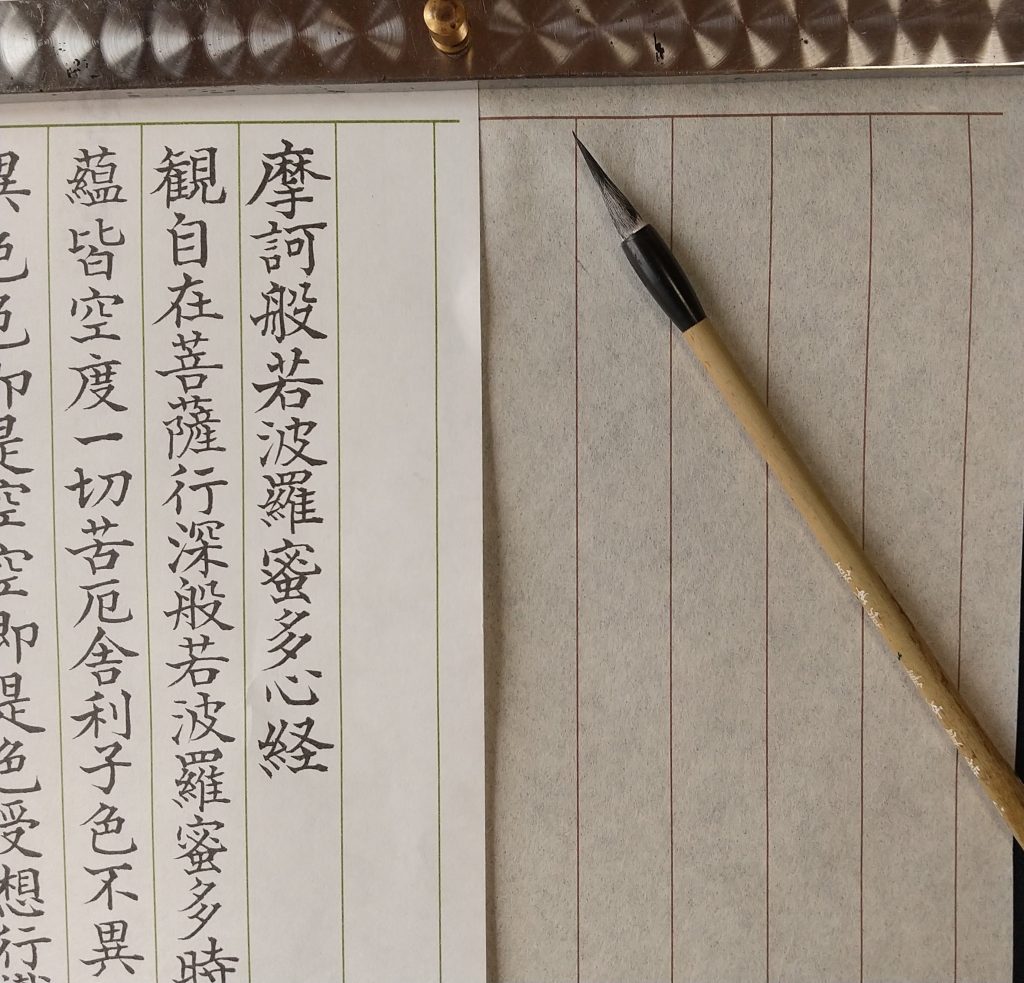 摩訶般若波羅蜜多心経
観自在菩薩行深般若波羅蜜多時
蘊皆空度一切苦厄舎利子色不異
異色色即是空空即是色受想行識